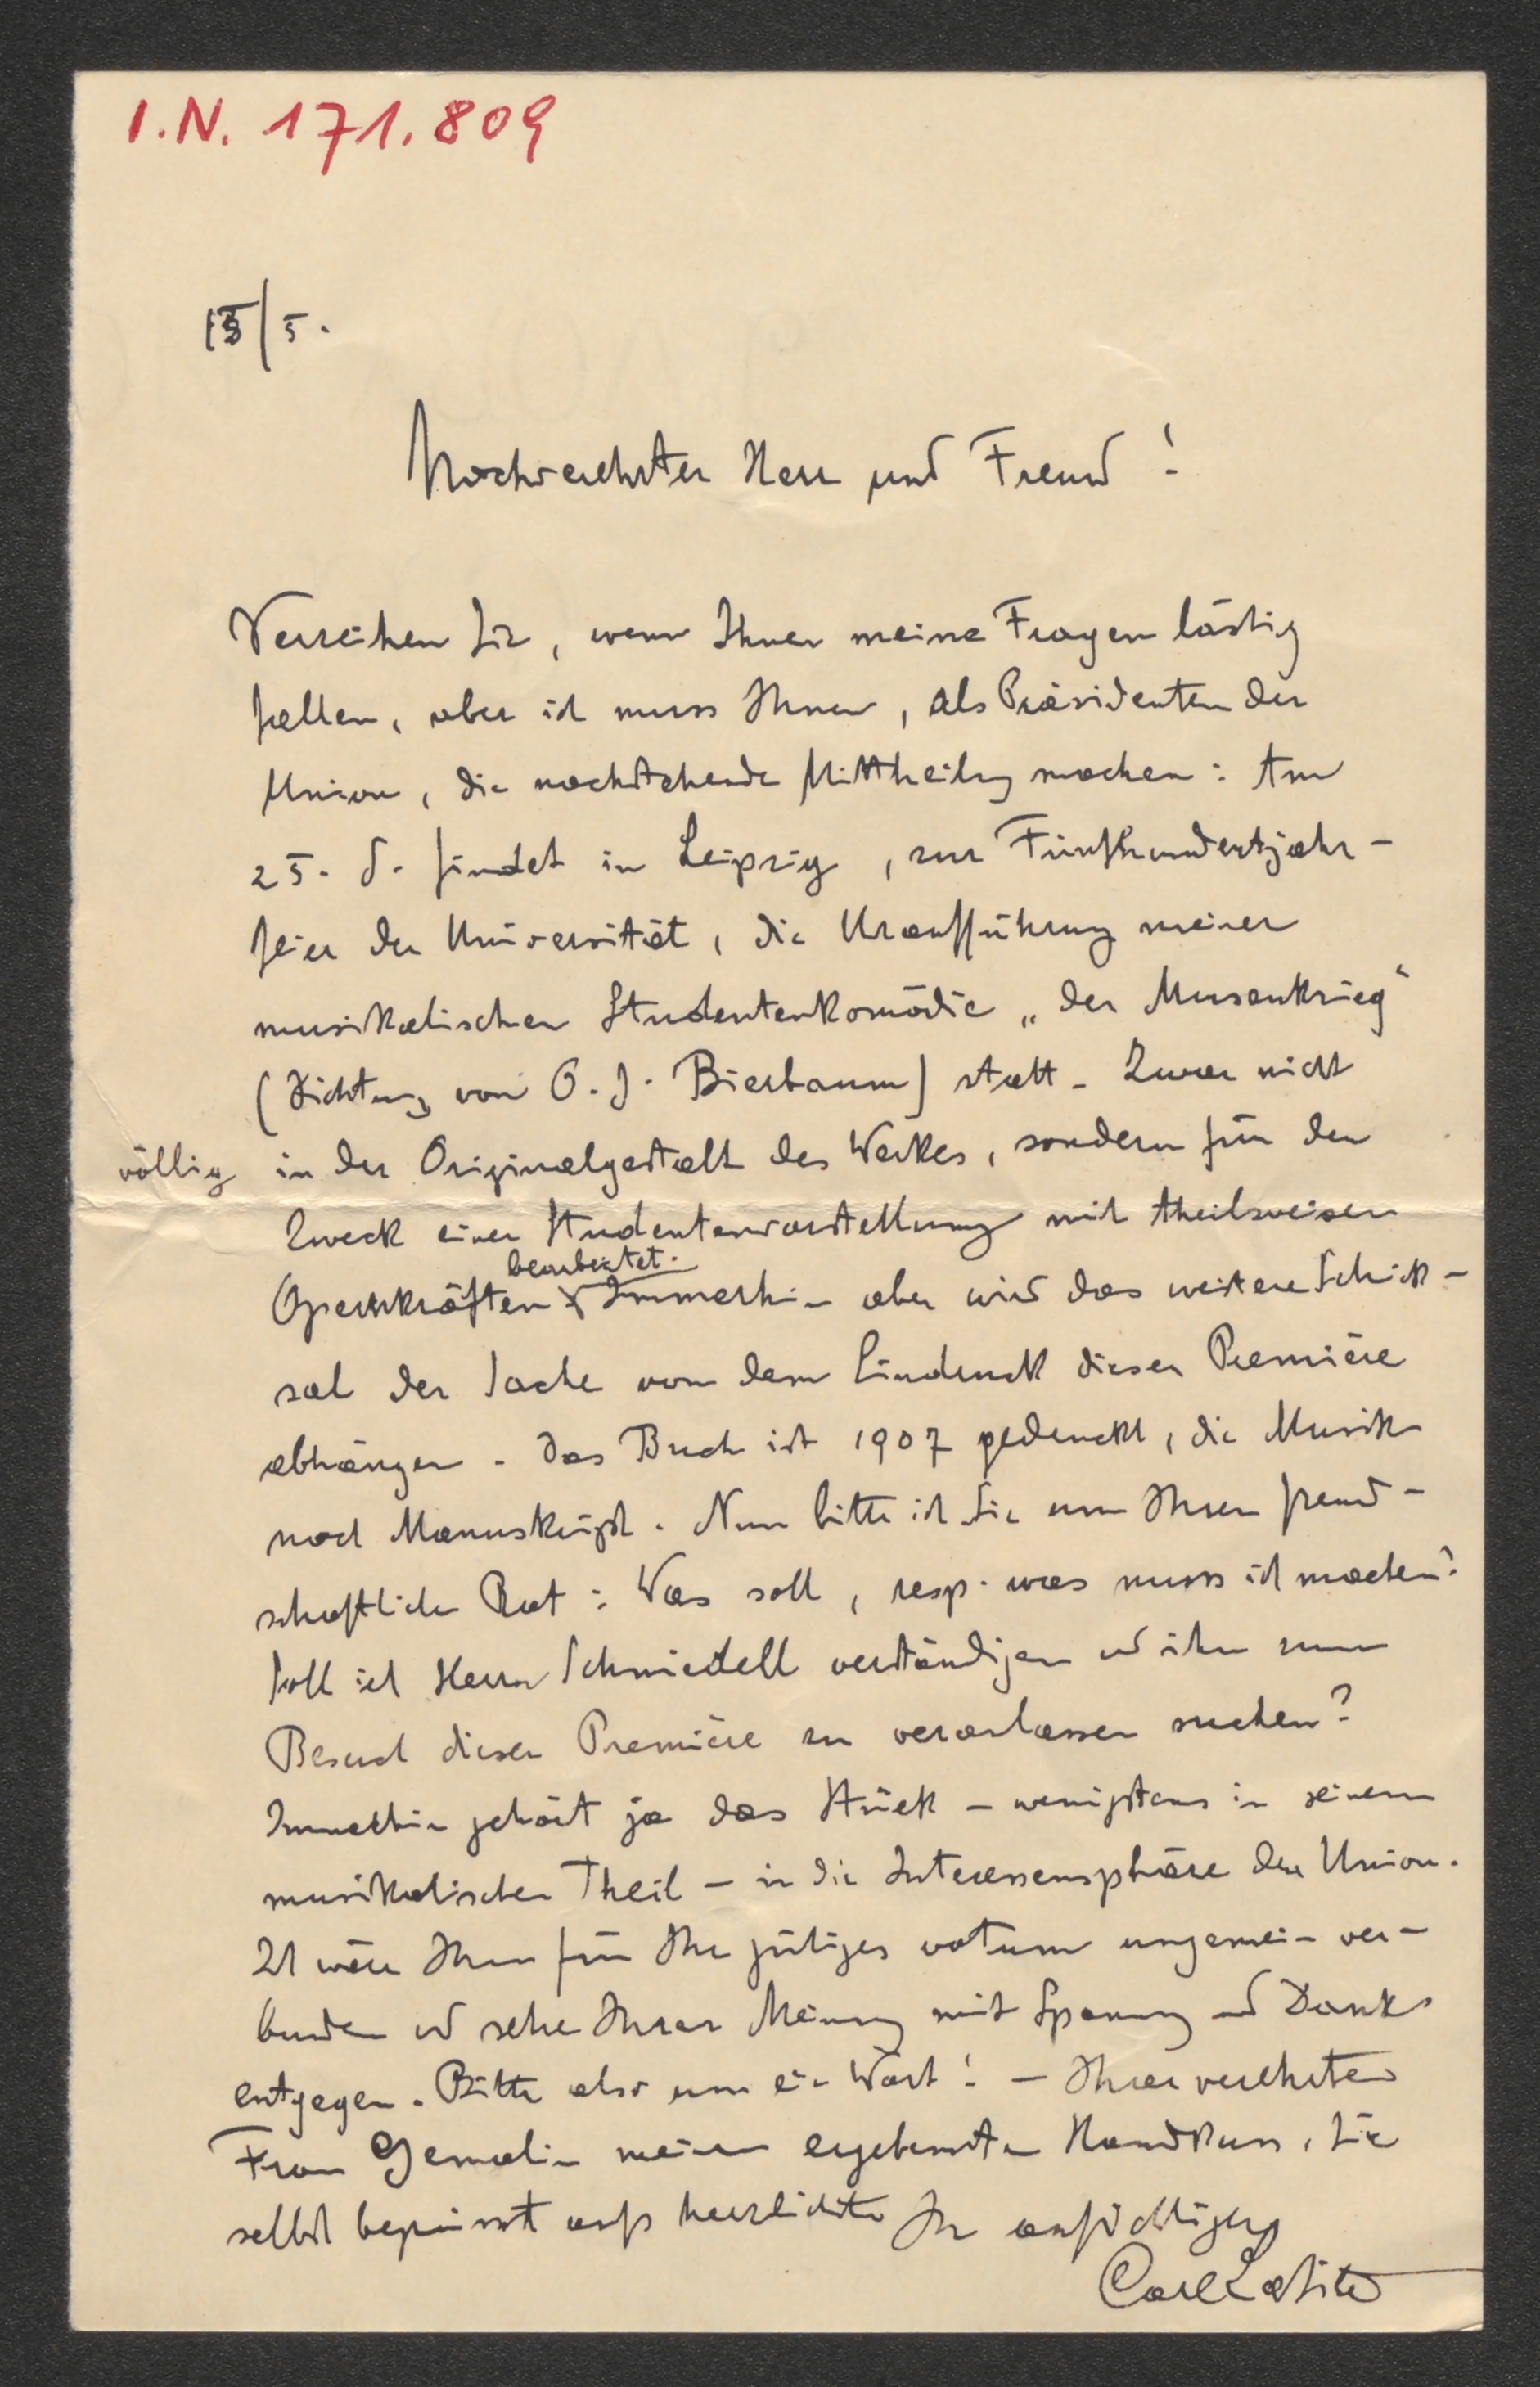 I.N. 171.809
15/5.
Hochverehrter Herr und Freund!
Verzeihen Sie, wenn Ihnen meine Fragen lästig
fallen, aber ich muss Ihnen, als Präsidenten der
Union, die nachstehende Mittheilung machen: Am
25. d. findet in Leipzig, zur Fünfhundertjahr-
feier der Universität, die Uraufführung meiner
musikalischen Studentenkomödie „der Musenkrieg“
(Dichtung von O. J. Bierbaum) statt. Zwar nicht
völlig in der Originalgestalt des Werkes, sondern für den
Zweck einer Studentenvorstellung mit theilweisen
bearbeitet.
Opernkräften Immerhin aber wird das weitere Schick-
sal der Sache von dem Eindruck dieser Première
abhängen. Das Buch ist 1907 gedruckt, die Musik
noch Manuskript. Nun bitte ich Sie um Ihren freund-
schaftlichen Rat: Was soll, resp. was muss ich machen?
Soll ich Herrn Schmiedell verständigen und ihn zum
Besuch dieser Première zu veranlassen suchen?
Immerhin gehört ja das Stück – wenigstens in seinem
musikalischen Theil – in die Interessensphäre der Union.
Ich wäre Ihnen für Ihr gütiges votum ungemein ver-
bunden und sehe Ihrer Meinung mit Spannung und Dank
entgegen. Bitte also um ein Wort! – Ihrer verehrten
Frau Gemalin meinen ergebensten Handkuss, Sie
selbst begrüsst aufs herzlichste Ihr aufrichtiger
Carl Lafite